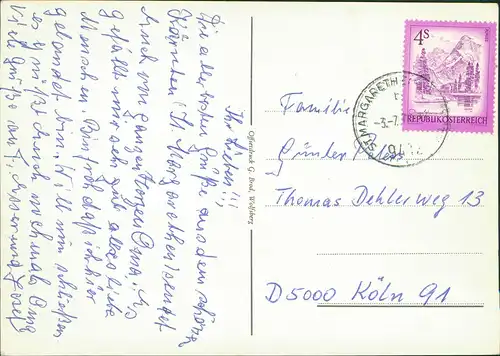 Ihr Lieben!!!
Die aller besten Grüße aus dem schönen
Kärnten (St. Margarethen) sendet
Euch von ganzen Herzen Oma. Es
gefällt mir sehr gut alles liebe
Menschen. Bin froh daß ich hier
gelandet bin. Will nun schließen
es grüßt Euch nochmals Oma
Viele Grüße an
Offsetdruck G. Bod, Wolfsberg
4S
REPUBLIK ÖSTERREICH
ST. MARGARETH
Familie
Günter
Thomas Dehlerweg 13
D5000 Köln 91